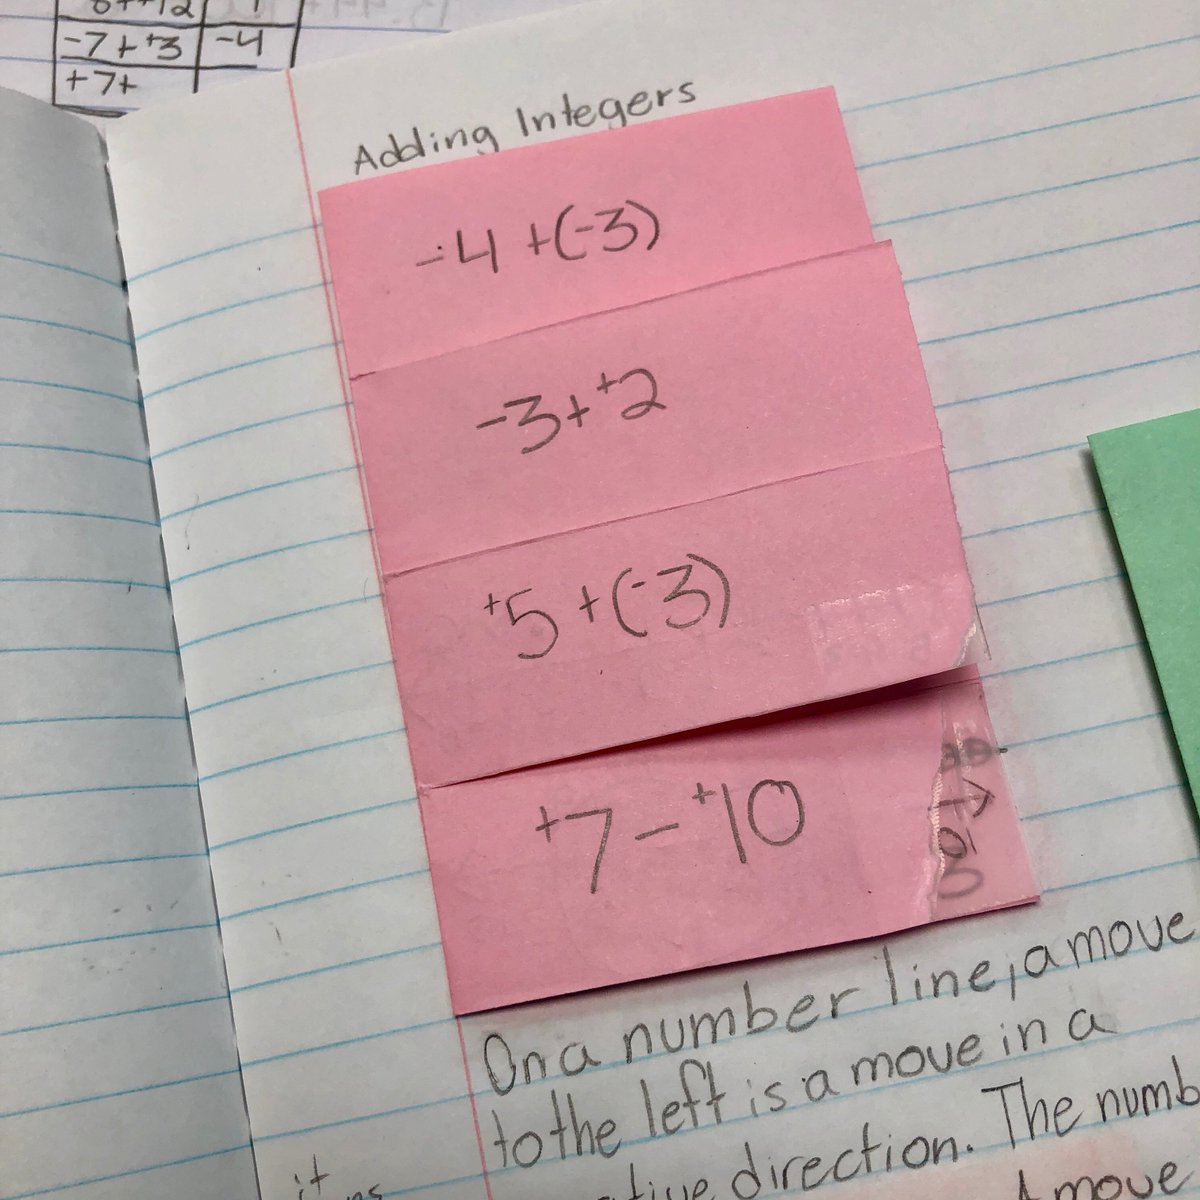 -7 + +3 -4
+7+
Adding Integers
-4 + (-3)
-3 + +2
+5 + (-3)
+7 - +10
On a number line, a move
to the left is a move in a
direction. The
it
A move